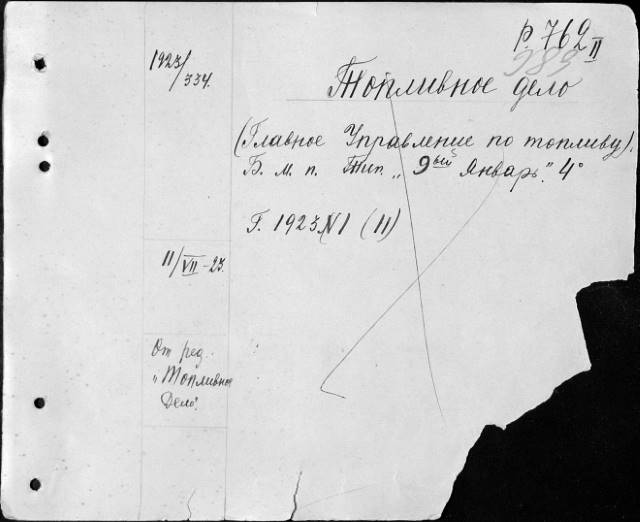 Р. 762 II
983
1923/334.
Топливное дело
(Главное Управление по топливу).
Б. м. п. Тип. „9ый Январь". 4°
Г. 1923 N1 (11)
11/VII-23.
От ред.
„Топливное
Дело".